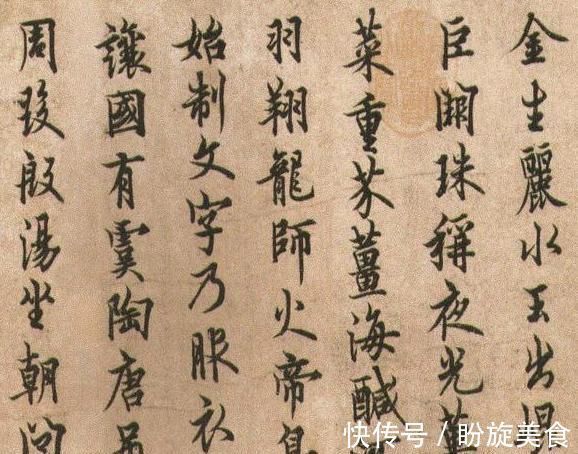 金生麗水玉出崐
巨闕珠稱夜光
菜重芥薑海鹹
羽翔龍師火帝鳥
始制文字乃服衣
讓國有虞陶唐
周發殷湯坐朝問
快传号/盼旋美食